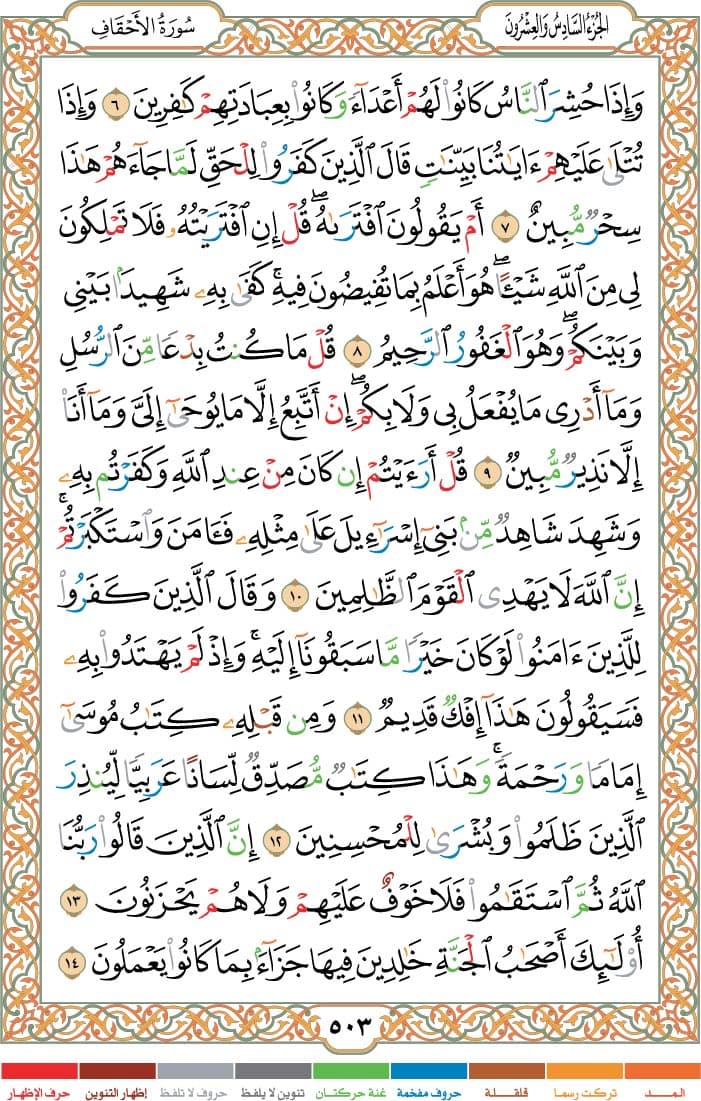 الجُزْءُ السَّادِسُ وَالعِشْرُونَ
سُورَةُ الأَحْقَافِ
وَإِذَا حُشِرَ ٱلنَّاسُ كَانُوا۟ لَهُمْ أَعْدَآءً وَكَانُوا۟ بِعِبَادَتِهِمْ كَٰفِرِينَ ٦ وَإِذَا
تُتْلَىٰ عَلَيْهِمْ ءَايَٰتُنَا بَيِّنَٰتٍ قَالَ ٱلَّذِينَ كَفَرُوا۟ لِلْحَقِّ لَمَّا جَآءَهُمْ هَٰذَا
سِحْرٌ مُّبِينٌ ٧ أَمْ يَقُولُونَ ٱفْتَرَىٰهُ ۖ قُلْ إِنِ ٱفْتَرَيْتُهُۥ فَلَا تَمْلِكُونَ
لِى مِنَ ٱللَّهِ شَيْـًٔا ۖ هُوَ أَعْلَمُ بِمَا تُفِيضُونَ فِيهِ ۚ كَفَىٰ بِهِۦ شَهِيدًۢا بَيْنِى
وَبَيْنَكُمْ ۖ وَهُوَ ٱلْغَفُورُ ٱلرَّحِيمُ ٨ قُلْ مَا كُنتُ بِدْعًا مِّنَ ٱلرُّسُلِ
وَمَآ أَدْرِى مَا يُفْعَلُ بِى وَلَا بِكُمْ ۖ إِنْ أَتَّبِعُ إِلَّا مَا يُوحَىٰٓ إِلَىَّ وَمَآ أَنَا۠
إِلَّا نَذِيرٌ مُّبِينٌ ٩ قُلْ أَرَءَيْتُمْ إِن كَانَ مِنْ عِندِ ٱللَّهِ وَكَفَرْتُم بِهِۦ
وَشَهِدَ شَاهِدٌ مِّنۢ بَنِىٓ إِسْرَٰٓءِيلَ عَلَىٰ مِثْلِهِۦ فَـَٔامَنَ وَٱسْتَكْبَرْتُمْ ۚ
إِنَّ ٱللَّهَ لَا يَهْدِى ٱلْقَوْمَ ٱلظَّٰلِمِينَ ١٠ وَقَالَ ٱلَّذِينَ كَفَرُوا۟
لِلَّذِينَ ءَامَنُوا۟ لَوْ كَانَ خَيْرًا مَّا سَبَقُونَآ إِلَيْهِ ۚ وَإِذْ لَمْ يَهْتَدُوا۟ بِهِۦ
فَسَيَقُولُونَ هَٰذَآ إِفْكٌ قَدِيمٌ ١١ وَمِن قَبْلِهِۦ كِتَٰبُ مُوسَىٰٓ
إِمَامًا وَرَحْمَةً ۚ وَهَٰذَا كِتَٰبٌ مُّصَدِّقٌ لِّسَانًا عَرَبِيًّا لِّيُنذِرَ
ٱلَّذِينَ ظَلَمُوا۟ وَبُشْرَىٰ لِلْمُحْسِنِينَ ١٢ إِنَّ ٱلَّذِينَ قَالُوا۟ رَبُّنَا
ٱللَّهُ ثُمَّ ٱسْتَقَٰمُوا۟ فَلَا خَوْفٌ عَلَيْهِمْ وَلَا هُمْ يَحْزَنُونَ ١٣
أُو۟لَٰٓئِكَ أَصْحَٰبُ ٱلْجَنَّةِ خَٰلِدِينَ فِيهَا جَزَآءًۢ بِمَا كَانُوا۟ يَعْمَلُونَ ١٤
٥٠٣
المــــد تركت رسما قلقــلة حروف مفخمة غنة حركتان تنوين لا يلفظ حروف لا تلفظ إظهار التنوين حرف الإظهار